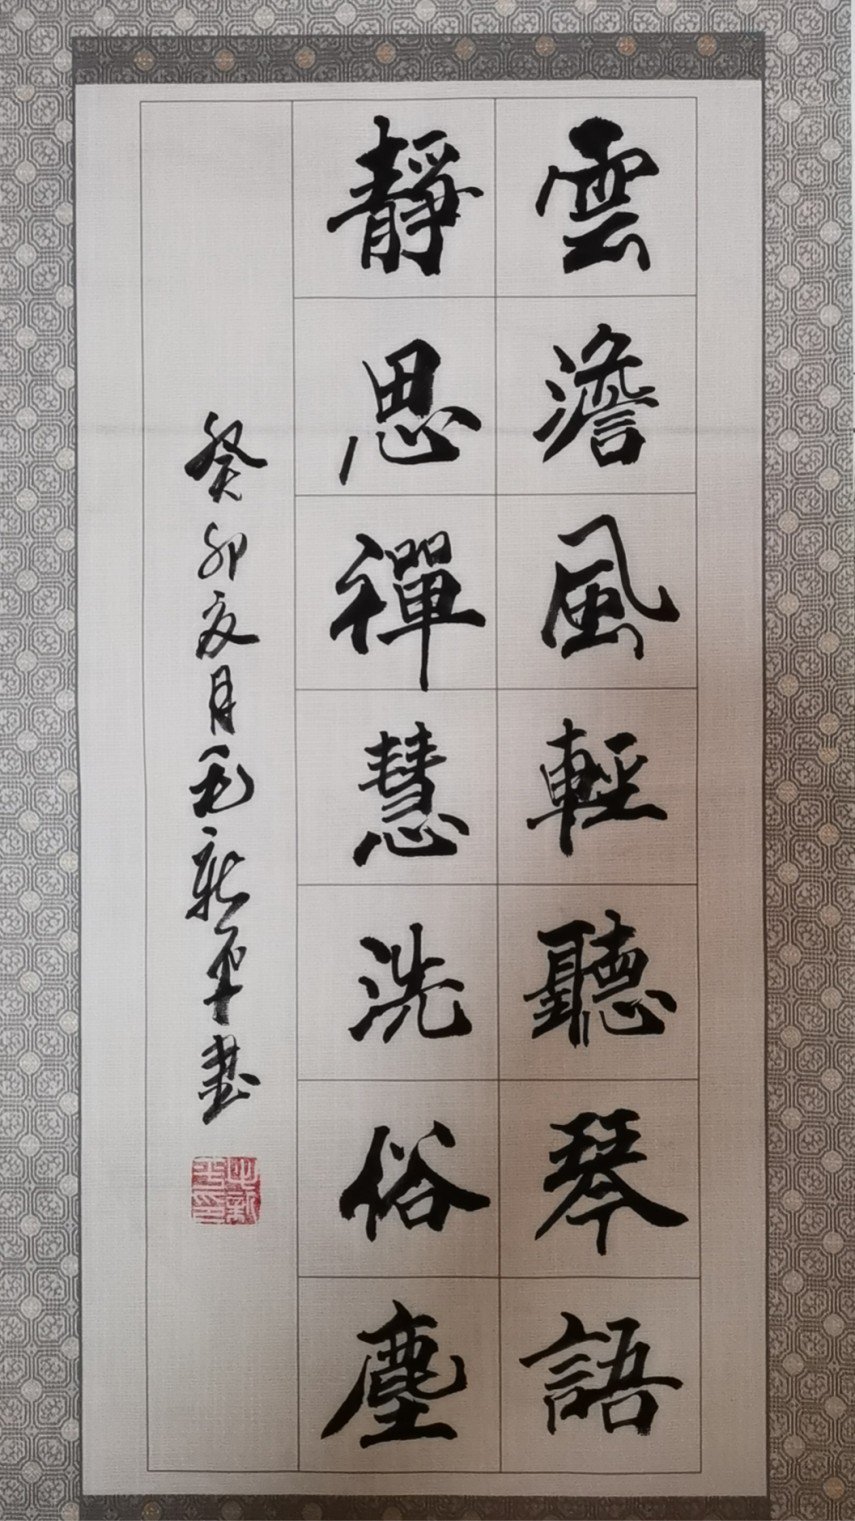 雲澹風輕聽琴語
靜思禪慧洗俗塵
癸卯亥月毛新平書